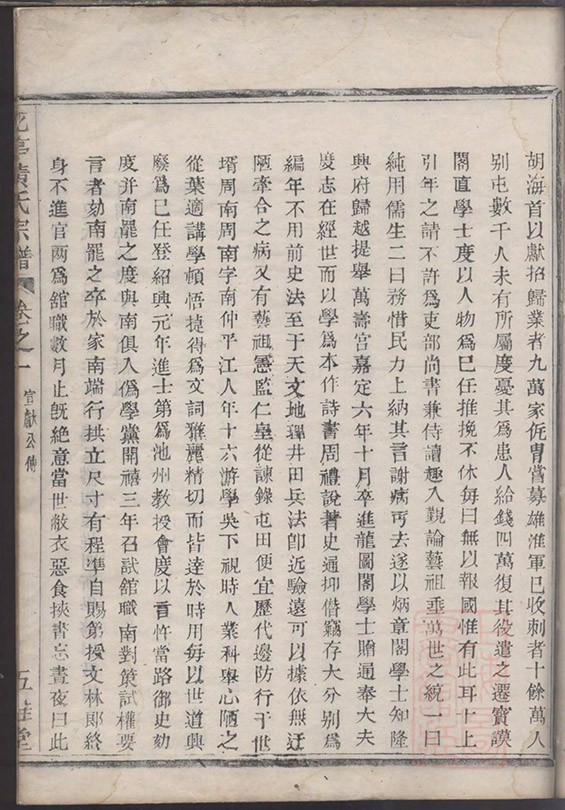 胡海首以獻招歸業者九萬家侂胄嘗募雄淮軍已收刺者十餘萬人
别屯數千人未有所屬度憂其爲患人給錢四萬復其役遣之遷寶謨
閣直學士度以人物爲己任推挽不休每曰無以報國惟有此耳十上
引年之請不許爲吏部尚書兼侍讀趣入覲論藝祖垂萬世之統一曰
純用儒生二曰務惜民力上納其言謝病丐去遂以炳章閣學士知隆
興府歸越提舉萬壽宮嘉定六年十月卒進龍圖閣學士贈通奉大夫
度志在經世而以學爲本作詩書周禮說著史通抑僭竊存大分别爲
編年不用前史法至于天文地理井田兵法卽近驗遠可以據依無迂
陋牽合之病又有藝祖憲監仁皇從諫錄屯田便宜歷代邊防行于世
壻周南周南字南仲平江人年十六游學吳下視時人業科舉心陋之
從葉適講學頓悟捷得爲文詞雅麗精切而皆達於時用每以世道興
廢爲己任登紹興元年進士第爲池州教授會度以言忤當路御史劾
度并南罷之度與南俱入僞學黨開禧三年召試館職南對策試權要
言者劾南罷之卒於家南端行拱立尺寸有程準自賜第授文林郎終
身不進官两爲舘職數月止旣絶意當世敝衣惡食挾書忘晝夜曰此
黃氏宗譜 卷之一 官獻公傳 五 堂